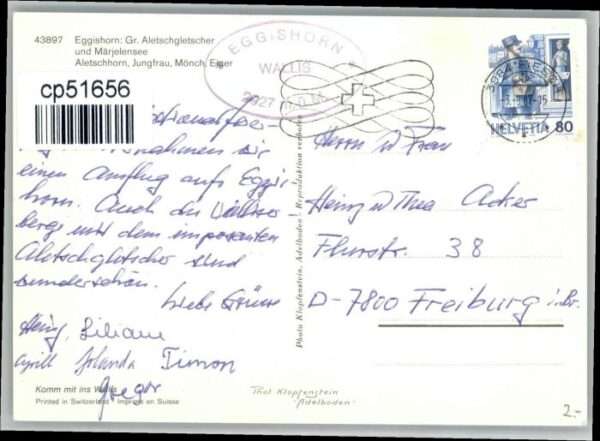 43897 Eggishorn: Gr. Aletschgletscher
und Märjelensee
Aletschhorn, Jungfrau, Mönch, Eiger
cp51656
EGGISHORN
WALLIS
2927 m
HELVETIA 80
unternahmen wir
einen Ausflug aufs Eggis-
horn. Auch die Walliser-
berge mit dem imposanten
Aletschgletscher sind
wunderschön.
Liebe Grüsse
Heinz, Liliane
Cyrill Jolanda Timon
Gregor
Komm mit ins Wallis
Printed in Switzerland Imprimé en Suisse
Photo Klopfenstein, Adelboden - Reproduktion verboten
Herrn u Frau
Heinz u Thea Acker
Flurstr. 38
D-7800 Freiburg i. Br.
Thol Klopfenstein
Adelboden
2.-